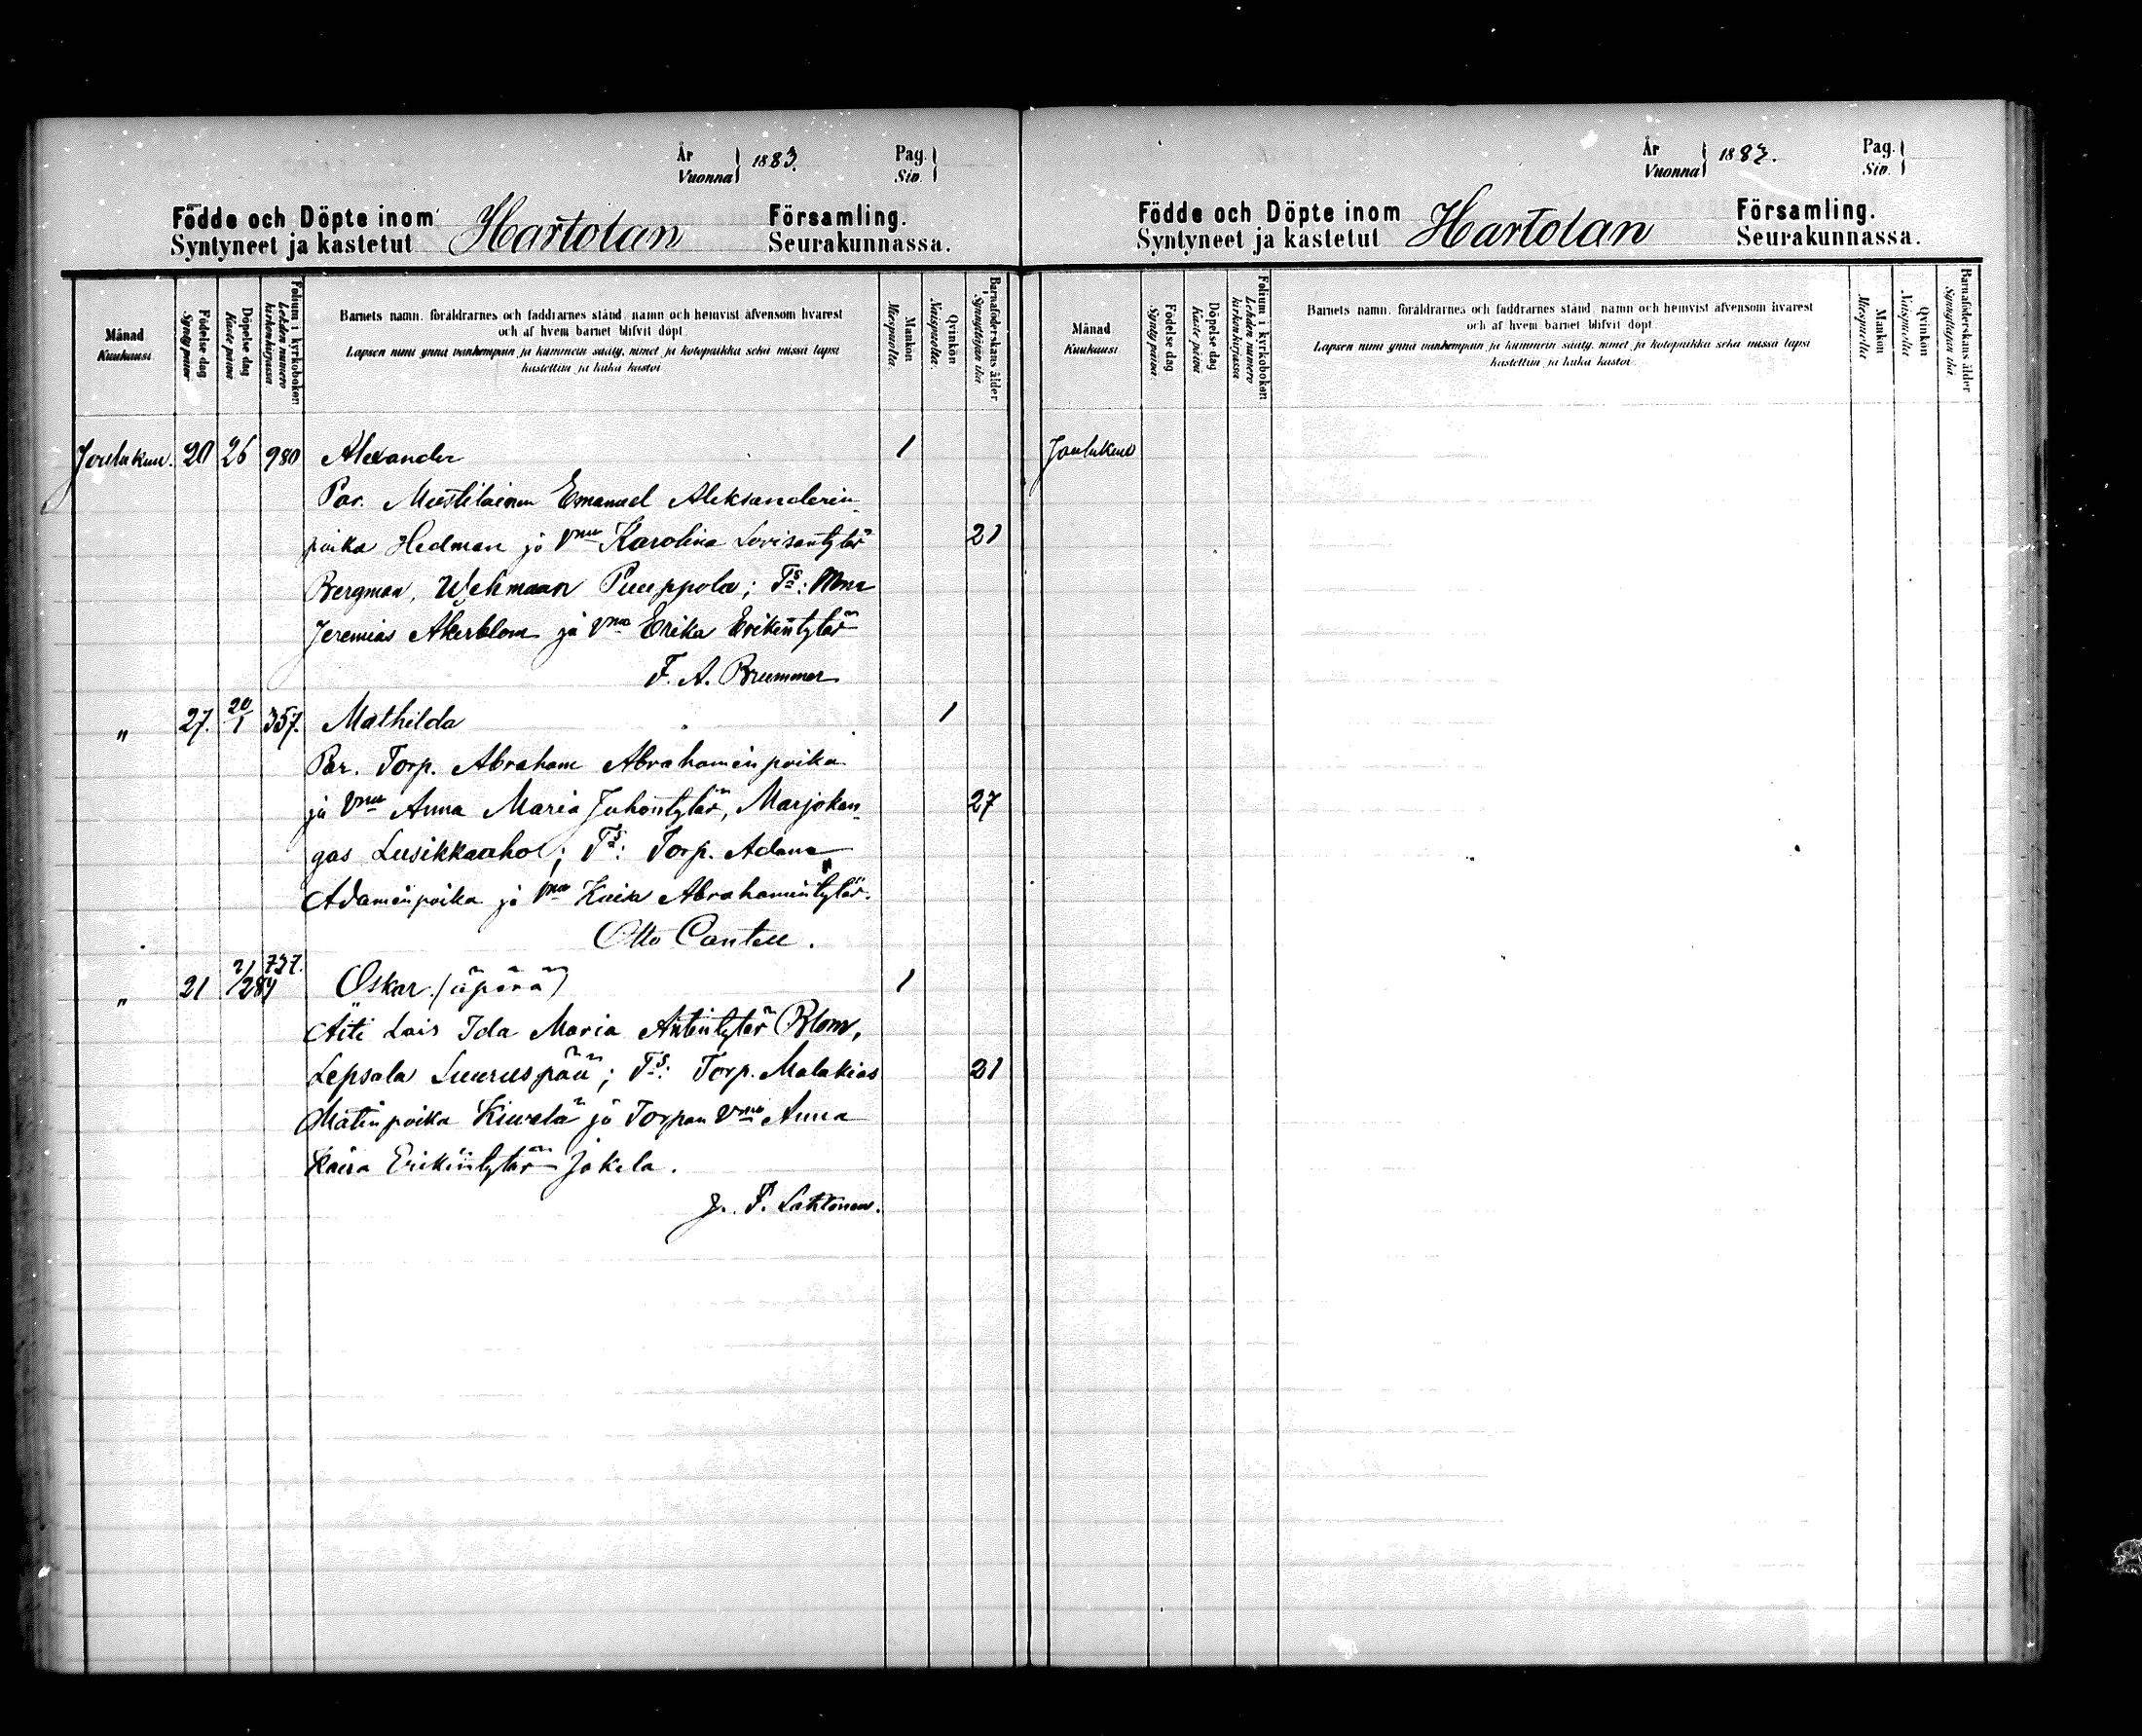 År
Vuonna 1883.
Pag.
Siv.
Födde och Döpte inom
Syntyneet ja kastetut Hartolan
Församling.
Seurakunnassa.
Månad
Kuukausi
Födelse dag
Synty päivä
Döpelse dag
Kaste päivä
Folium i kyrkoboken
Lehden numero
kirkonkirjassa
Barnets namn, föräldrarnes och faddrarnes stånd, namn och hemvist äfvensom hvarest
och af hvem barnet blifvit döpt.
Lapsen nimi ynnä vanhempain ja kummein sääty, nimet ja kotopaikka sekä missä lapsi
kastettiin ja kuka kastoi.
Mankön
Miespuolia
Qvinkön
Naispuolia.
Barnaföderskans ålder
Synnyttäjän ikä
Joulukuu. 20 26 980 Alexander 1
Par. Mestiläinen Emanuel Aleksanderin
poika Hedman ja Vmo Karolina Lovisantytär 21
Bergman, Wehmaan Puuppola; Ts:
Jeremias Akerblom ja Vmo Erika Erikintytär
F. A. Brummer
" 27. 20/1 357. Mathilda 1
Par. Torp. Abraham Abrahaminpoika
ja Vmo Anna Maria Juhontytär, Marjokan 27
gas Lusikkaaho; Ts: Torp. Adam
Adaminpoika ja Vmo Kaisa Abrahamintytär.
Otto Cantell.
" 21 2/1 84 737. Oskar (äpärä) 1
Äiti Lois Ida Maria Antintytär Blom,
Lepsala Suuruspää; Ts: Torp. Malakias 21
Matinpoika Kiwelä ja Torpan Vmo Anna
Kaisa Erikintytär Jokela.
J. F. Lahtonen.
År
Vuonna 1883.
Pag.
Siv.
Födde och Döpte inom
Syntyneet ja kastetut Hartolan
Församling.
Seurakunnassa.
Månad
Kuukausi
Födelse dag
Synty päivä
Döpelse dag
Kaste päivä
Folium i kyrkoboken
Lehden numero
kirkonkirjassa
Barnets namn, föräldrarnes och faddrarnes stånd, namn och hemvist äfvensom hvarest
och af hvem barnet blifvit döpt.
Lapsen nimi ynnä vanhempain ja kummein sääty, nimet ja kotopaikka sekä missä lapsi
kastettiin ja kuka kastoi.
Mankön
Miespuolia
Qvinkön
Naispuolia
Barnaföderskans ålder
Synnyttäjän ikä
Joulukuu